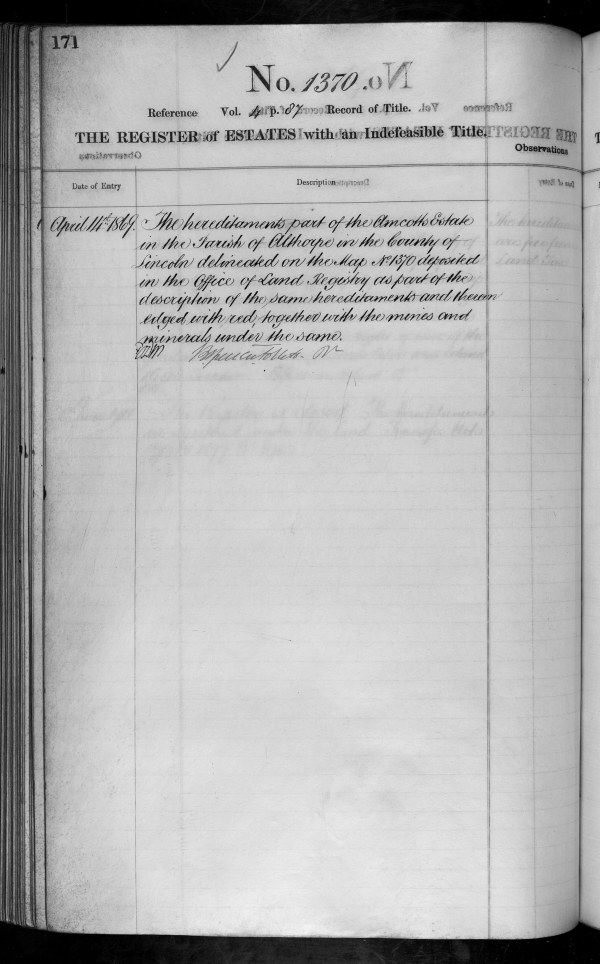 171
No. 1370.
Reference Vol. 4 p. 87 Record of Title.
THE REGISTER of ESTATES with an Indefeasible Title.
Observations
Date of Entry
Description
April 14th 1869. The hereditaments part of the Amcotts Estate
in the Parish of Althorpe in the County of
Lincoln delineated on the Map No. 1370 deposited
in the Office of Land Registry as part of the
description of the same hereditaments and thereon
edged with red, together with the mines and
minerals under the same.